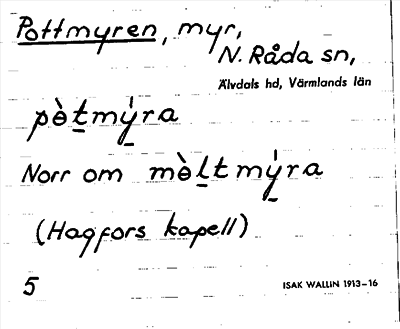 Pottmyren, myr,
N. Råda sn,
Älvdals hd, Värmlands län
pètmy̍ra
Norr om mèltmy̍ra
(Hagfors kapell)
5
ISAK WALLIN 1913-16